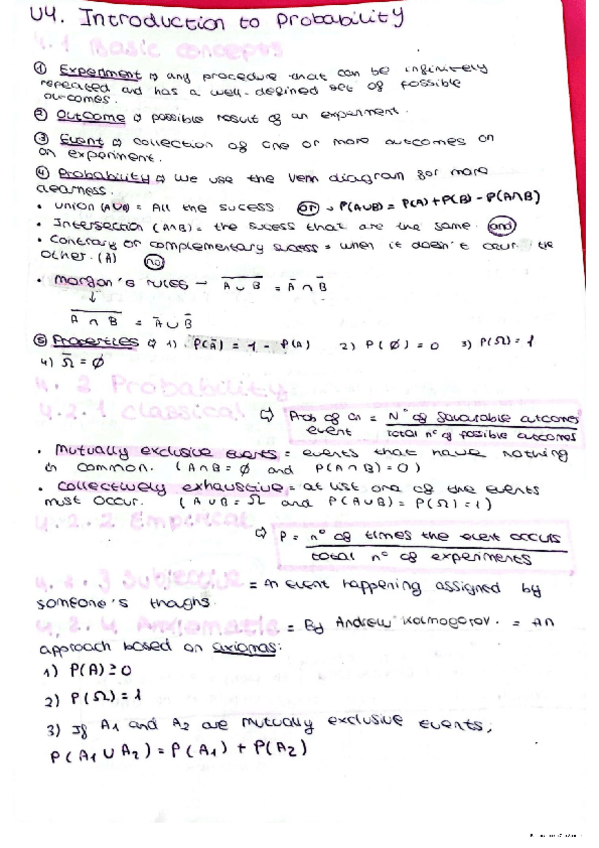 U4. Introduction to Probability
4.1 Basic concepts
① Experiment ⇨ any procedure that can be infinitely
repeated and has a well-defined set of possible
outcomes.
② Outcome ⇨ possible result of an experiment.
③ Event ⇨ collection of one or more outcomes on
an experiment.
④ Probability ⇨ We use the Venn diagram for more
clearness.
• Union (A∪B) = All the sucess. or → P(A∪B) = P(A)+P(B) - P(A∩B)
• Intersection (A∩B) = the sucess that are the same. and
• Contrary or complementary sucess = when it doesn't ocur the
other. (Ā) no
• Morgan's rules → \overline{A ∪ B} = Ā ∩ B̄
↓
\overline{A ∩ B} = Ā ∪ B̄
⑤ Properties ⇨ 1) P(Ā) = 1 - P(A) 2) P(∅) = 0 3) P(Ω) = 1
4) Ω̄ = ∅
4.2 Probability
4.2.1 Classical ⇨ Prob of an event = Nº of favarable outcomes / Total nº of possible outcomes
• Mutually exclusive events = events that have nothing
in common. (A∩B = ∅ and P(A∩B) = 0)
• Collectively exhaustive = at list one of the events
must occur. (A∪B = Ω and P(A∪B) = P(Ω) = 1)
4.2.2 Empirical
⇨ P = nº of times the event occurs / total nº of experiments
4.2.3 Subjective = An event happening assigned by
someone's thoghs.
4.2.4 Axiomatic = By Andrew Kolmogorov. = An
approach based on axiomas:
1) P(A) ≥ 0
2) P(Ω) = 1
3) If A₁ and A₂ are mutually exclusive events,
P(A₁ ∪ A₂) = P(A₁) + P(A₂)